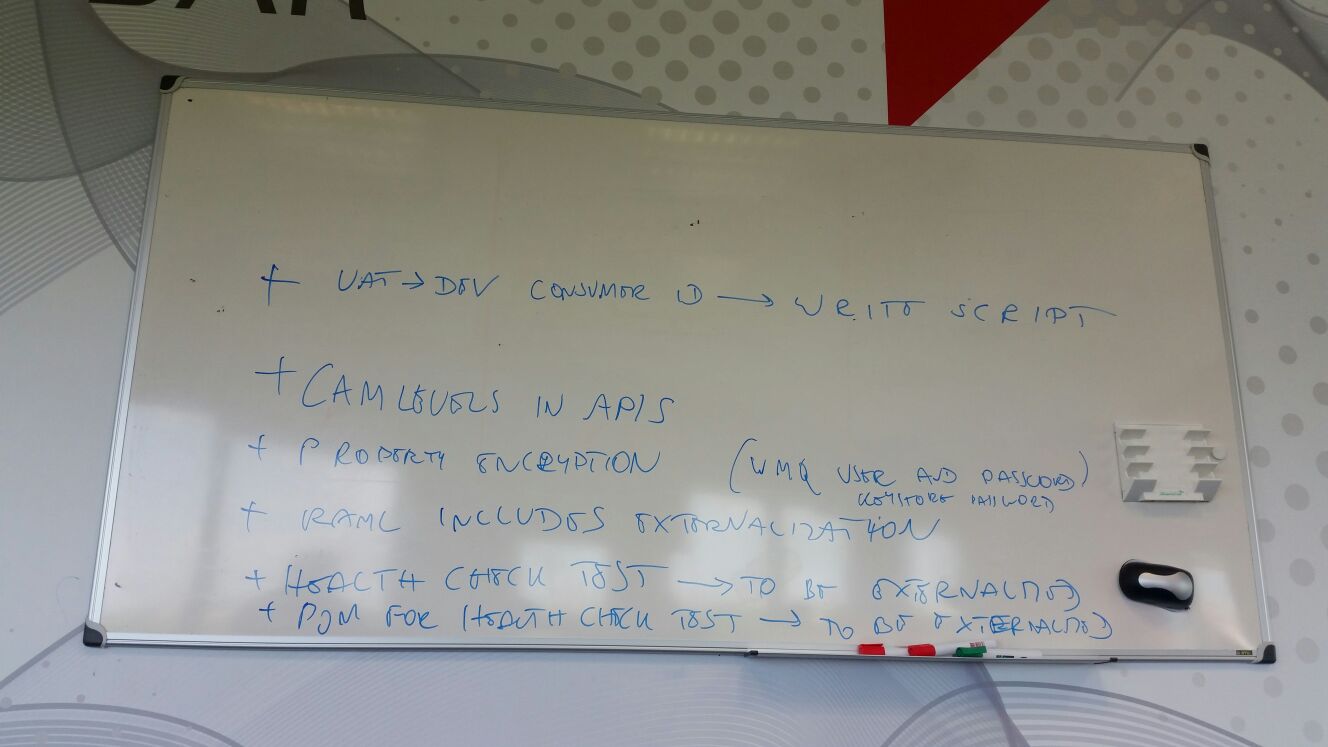 + UAT → DEV CONSUMER ID → WRITE SCRIPT
+ CAM LEVELS IN APIS
+ PROPERTY ENCRYPTION (WMQ USER AND PASSWORD)
KEYSTORE PASSWORD
+ RAML INCLUDES EXTERNALIZATION
+ HEALTH CHECK TEST → TO BE EXTERNALIZED
+ POM FOR HEALTH CHECK TEST → TO BE EXTERNALIZED